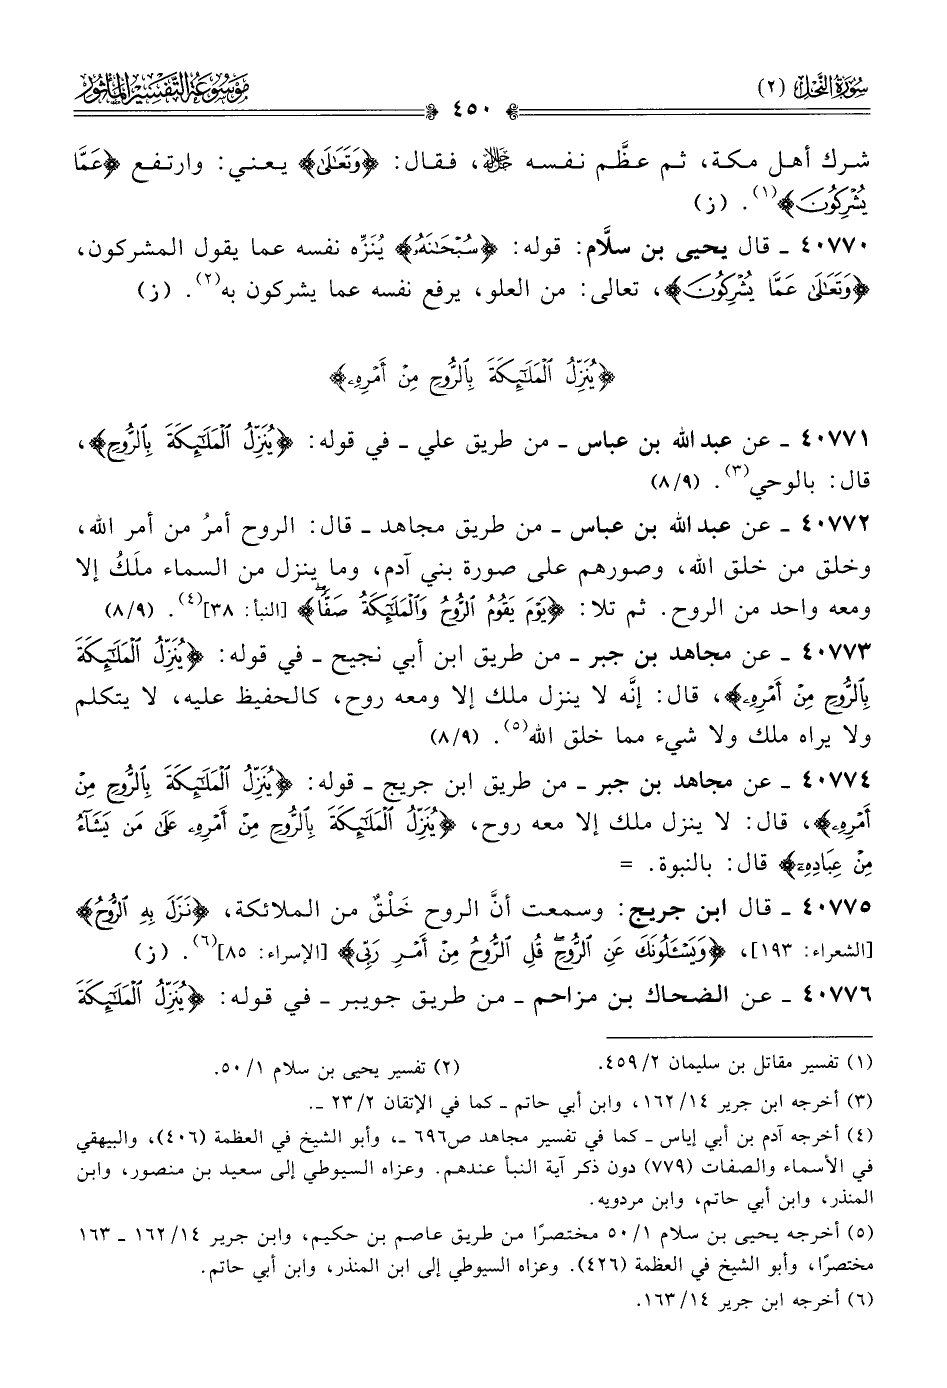 سُورَةُ النَّحْل (٢)
٤٥٠
مَوْسُوعَةُ التَّفْسِيرِ المَأْثُور
شرك أهل مكة، ثم عظَّم نفسه ﷻ، فقال: ﴿وَتَعَٰلَىٰ﴾ يعني: وارتفع ﴿عَمَّا
يُشْرِكُونَ﴾(١). (ز)
٤٠٧٧٠ ـ قال يحيى بن سلَّام: قوله: ﴿سُبْحَٰنَهُۥ﴾ يُنَزِّه نفسه عما يقول المشركون،
﴿وَتَعَٰلَىٰ عَمَّا يُشْرِكُونَ﴾، تعالى: من العلو، يرفع نفسه عما يشركون به(٢). (ز)
﴿يُنَزِّلُ ٱلْمَلَٰٓئِكَةَ بِٱلرُّوحِ مِنْ أَمْرِهِۦ﴾
٤٠٧٧١ ـ عن عبد الله بن عباس ـ من طريق علي ـ في قوله: ﴿يُنَزِّلُ ٱلْمَلَٰٓئِكَةَ بِٱلرُّوحِ﴾،
قال: بالوحي(٣). (٨/٩)
٤٠٧٧٢ ـ عن عبد الله بن عباس ـ من طريق مجاهد ـ قال: الروح أمرُ من أمر الله،
وخلق من خلق الله، وصورهم على صورة بني آدم، وما ينزل من السماء ملَكُ إلا
ومعه واحد من الروح. ثم تلا: ﴿يَوْمَ يَقُومُ ٱلرُّوحُ وَٱلْمَلَٰٓئِكَةُ صَفًّاۖ﴾ [النبأ: ٣٨](٤). (٨/٩)
٤٠٧٧٣ ـ عن مجاهد بن جبر ـ من طريق ابن أبي نجيح ـ في قوله: ﴿يُنَزِّلُ ٱلْمَلَٰٓئِكَةَ
بِٱلرُّوحِ مِنْ أَمْرِهِۦ﴾، قال: إنَّه لا ينزل ملك إلا ومعه روح، كالحفيظ عليه، لا يتكلم
ولا يراه ملك ولا شيء مما خلق الله(٥). (٨/٩)
٤٠٧٧٤ ـ عن مجاهد بن جبر ـ من طريق ابن جريج ـ قوله: ﴿يُنَزِّلُ ٱلْمَلَٰٓئِكَةَ بِٱلرُّوحِ مِنْ
أَمْرِهِۦ﴾، قال: لا ينزل ملك إلا معه روح، ﴿يُنَزِّلُ ٱلْمَلَٰٓئِكَةَ بِٱلرُّوحِ مِنْ أَمْرِهِۦ عَلَىٰ مَن يَشَآءُ
مِنْ عِبَادِهِۦٓ﴾ قال: بالنبوة. =
٤٠٧٧٥ ـ قال ابن جريج: وسمعت أنَّ الروح خَلْقٌ من الملائكة، ﴿نَزَلَ بِهِ ٱلرُّوحُ﴾
[الشعراء: ١٩٣]، ﴿وَيَسْـَٔلُونَكَ عَنِ ٱلرُّوحِۖ قُلِ ٱلرُّوحُ مِنْ أَمْرِ رَبِّى﴾ [الإسراء: ٨٥](٦). (ز)
٤٠٧٧٦ ـ عن الضحاك بن مزاحم ـ من طريق جويبر ـ في قوله: ﴿يُنَزِّلُ ٱلْمَلَٰٓئِكَةَ
(١) تفسير مقاتل بن سليمان ٤٥٩/٢. (٢) تفسير يحيى بن سلام ٥٠/١.
(٣) أخرجه ابن جرير ١٦٢/١٤، وابن أبي حاتم ـ كما في الإتقان ٢٣/٢ ـ.
(٤) أخرجه آدم بن أبي إياس ـ كما في تفسير مجاهد ص٦٩٦ ـ، وأبو الشيخ في العظمة (٤٠٦)، والبيهقي
في الأسماء والصفات (٧٧٩) دون ذكر آية النبأ عندهم. وعزاه السيوطي إلى سعيد بن منصور، وابن
المنذر، وابن أبي حاتم، وابن مردويه.
(٥) أخرجه يحيى بن سلام ٥٠/١ مختصرًا من طريق عاصم بن حكيم، وابن جرير ١٦٢/١٤ ـ ١٦٣
مختصرًا، وأبو الشيخ في العظمة (٤٢٦). وعزاه السيوطي إلى ابن المنذر، وابن أبي حاتم.
(٦) أخرجه ابن جرير ١٦٣/١٤.